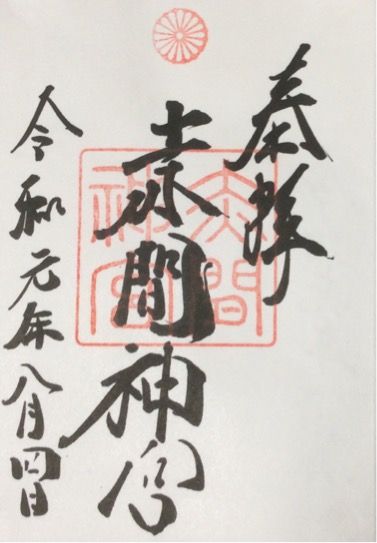 奉拜
赤間神宮
赤間神宮
令和元年八月四日